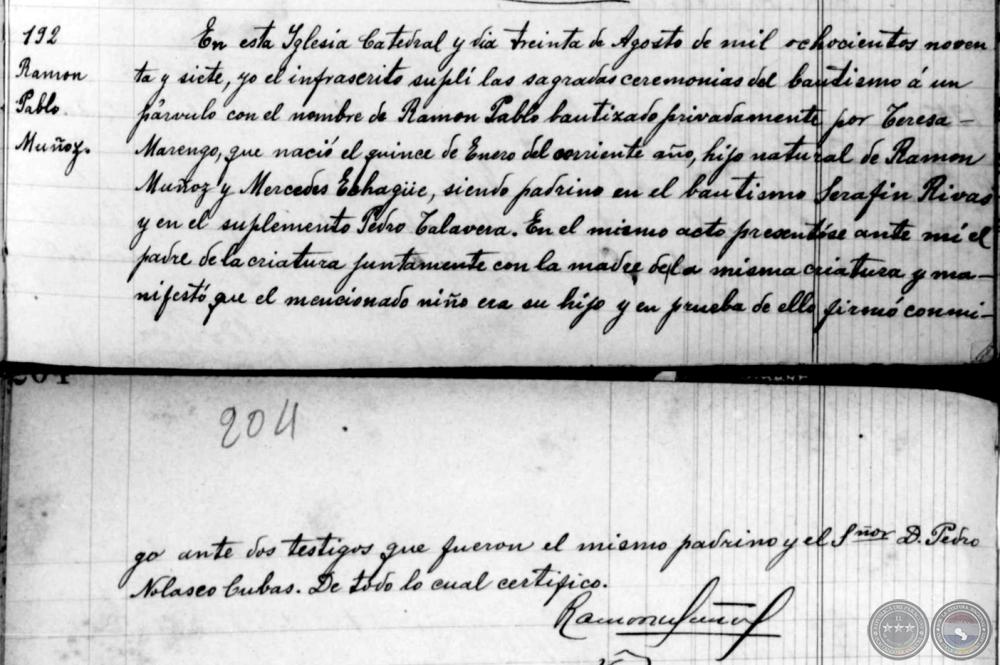 192
Ramon
Pablo
Muñoz.
En esta Yglesia Catedral y dia treinta de Agosto de mil ochocientos noven
ta y siete, yo el infrascrito suplí las sagradas ceremonias del bautismo á un
párvulo con el nombre de Ramon Pablo bautizado privadamente por Teresa -
Marengo, que nació el quince de Enero del corriente año, hijo natural de Ramon
Muñoz y Mercedes Echagüe, siendo padrino en el bautismo Serafin Rivas
y en el suplemento Pedro Talavera. En el mismo acto presentóse ante mí el
padre de la criatura juntamente con la madre de la misma criatura y ma-
nifestó, que el mencionado niño era su hijo y en prueba de ello firmó conmi-
204
go ante dos testigos que fueron el mismo padrino y el Sñor D. Pedro
Nolasco Cubas. De todo lo cual certifico.
Ramon Muñoz